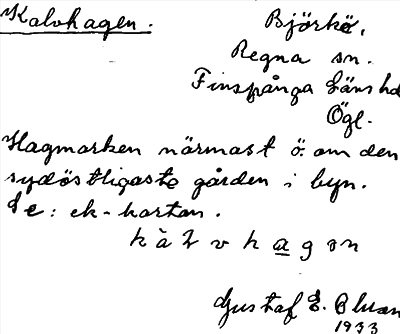 Kalvhagen.
Björkö,
Regna sn.
Finspånga läns hd
Ögl.
Hagmarken närmast ö. om den
sydöstligaste gården i byn.
Se: ek-kartan.
k à l v h a g ə n
Gustaf E.
1933